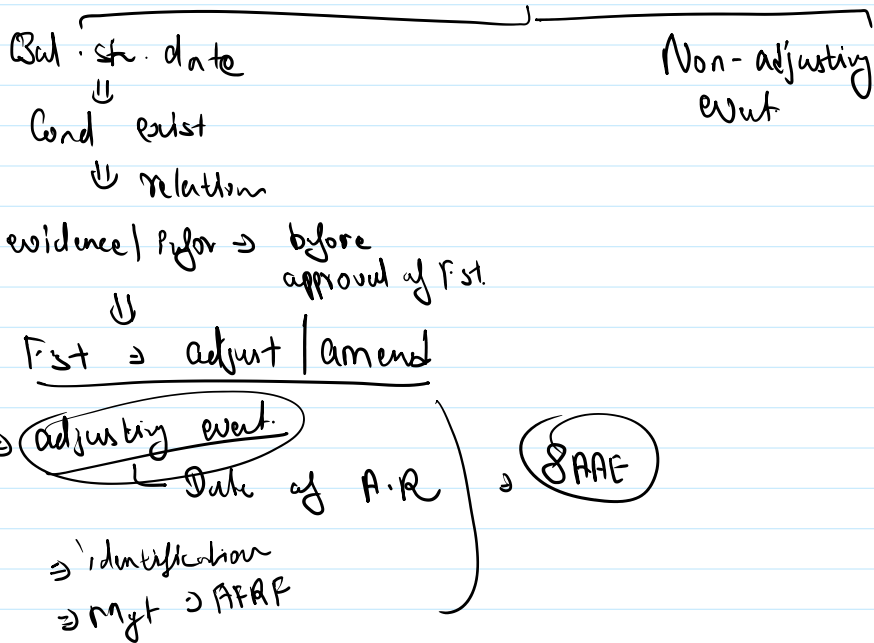 Bal. sh. date
Non-adjusting
event
⇓
Cond exist
⇓ relation
evidence | Infor ⇒ before
approval of F.st.
⇓
F.st ⇒ adjust | amend
⇒ adjusting event.
Date of A.R ⇒ SAAE
⇒ identification
⇒ Mgt ⇒ AFRF